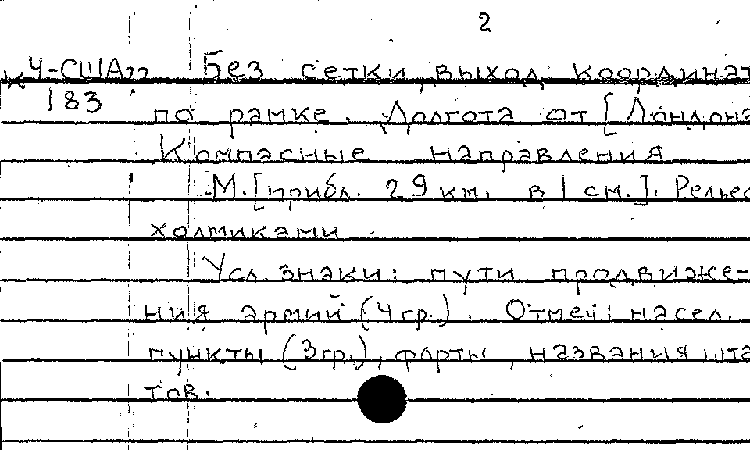 2
К Ч-США22 Без сетки, выход координат
183
по рамке. Долгота от [Лондона
Компасные направления
М.[прибл. 29 км. в 1 см.]. Рельеф
холмиками.
Усл. знаки: пути продвиже-
ния армий (4 гр.). Отмеч: насел.
пункты (3гр.), форты, названия шта
тов.